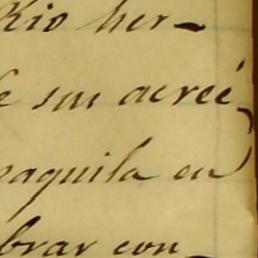 Rio her-
e sus acree
naquila en
brar con